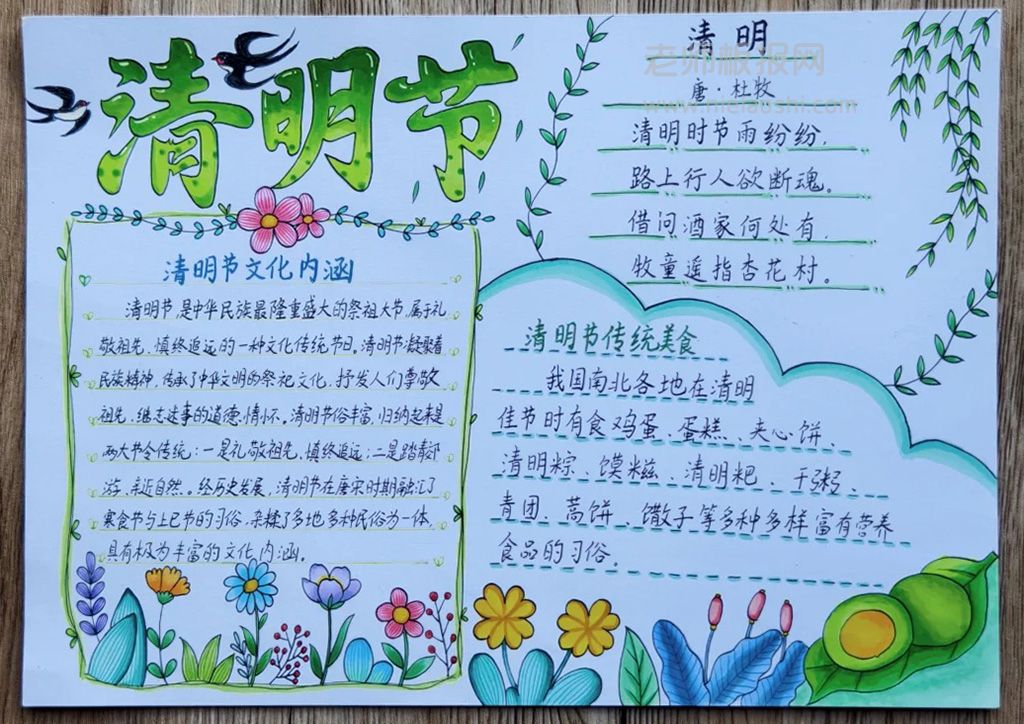 清明节
清明节文化内涵
清明节,是中华民族最隆重盛大的祭祖大节,属于礼
敬祖先、慎终追远的一种文化传统节日。清明节凝聚着
民族精神,传承了中华文明的祭祀文化,抒发人们尊敬
祖先、继志述事的道德情怀。清明节俗丰富,归纳起来是
两大节令传统:一是礼敬祖先,慎终追远;二是踏青郊
游、亲近自然。经历史发展,清明节在唐宋时期融汇了
寒食节与上巳节的习俗,杂糅了多地多种民俗为一体,
具有极为丰富的文化内涵。
清明
唐·杜牧
清明时节雨纷纷,
路上行人欲断魂。
借问酒家何处有,
牧童遥指杏花村。
清明节传统美食
我国南北各地在清明
佳节时有食鸡蛋、蛋糕、夹心饼、
清明粽、馍糍、清明粑、干粥、
青团、蒿饼、馓子等多种多样富有营养
食品的习俗。
老师板报网